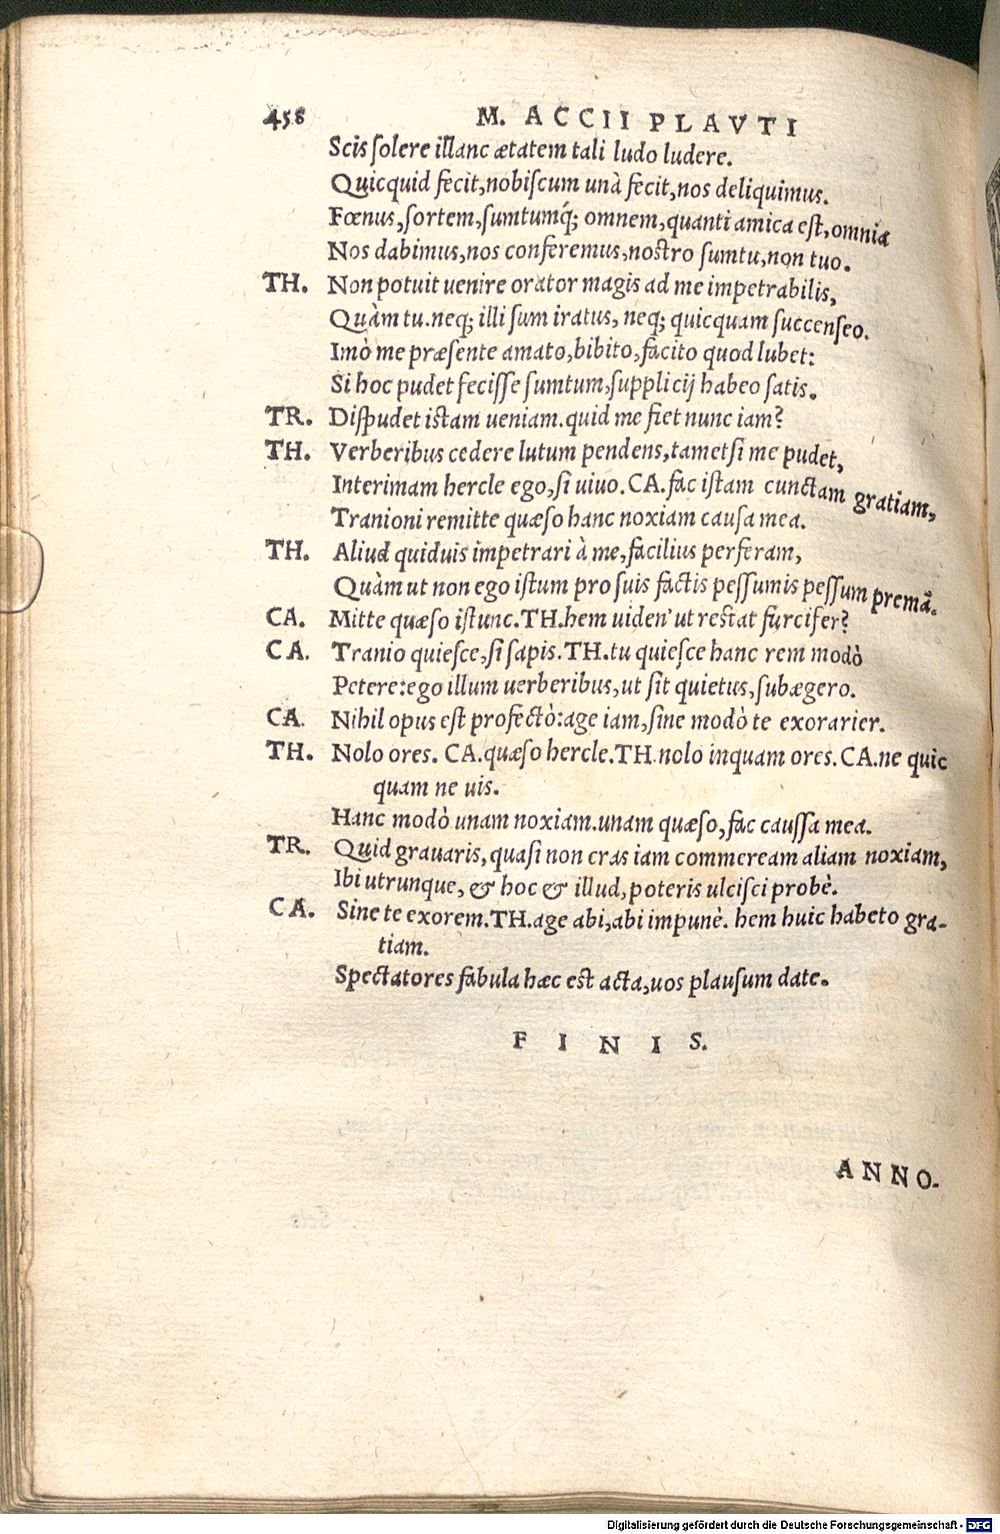 458 M. ACCII PLAVTI
Scis ſolere illanc ætatem tali ludo ludere.
Quicquid fecit, nobiſcum unà fecit, nos deliquimus.
Fœnus, ſortem, ſumtumq́; omnem, quanti amica eſt, omnia
Nos dabimus, nos conferemus, noſtro ſumtu, non tuo.
TH. Non potuit uenire orator magis ad me impetrabilis,
Quàm tu. neq; illi ſum iratus, neq; quicquam ſuccenſeo.
Imò me præſente amato, bibito, facito quod lubet:
Si hoc pudet feciſſe ſumtum, ſupplicij habeo ſatis.
TR. Diſpudet iſtam ueniam. quid me fiet nunc iam?
TH. Verberibus cedere lutum pendens, tametſi me pudet,
Interimam hercle ego, ſi uiuo. CA. fac iſtam cunctam gratiam,
Tranioni remitte quæſo hanc noxiam cauſa mea.
TH. Aliud quiduis impetrari à me, facilius perferam,
Quàm ut non ego iſtum pro ſuis factis peſſumis peſſum premā.
CA. Mitte quæſo iſtunc. TH. hem uiden' ut reſtat furcifer?
CA. Tranio quieſce, ſi ſapis. TH. tu quieſce hanc rem modò
Petere: ego illum uerberibus, ut ſit quietus, ſubægero.
CA. Nihil opus eſt profectò: age iam, ſine modò te exorarier.
TH. Nolo ores. CA. quæſo hercle. TH. nolo inquam ores. CA. ne quic
quam ne uis.
Hanc modò unam noxiam. unam quæſo, fac cauſſa mea.
TR. Quid grauaris, quaſi non cras iam commeream aliam noxiam,
Ibi utrunque, & hoc & illud, poteris ulciſci probè.
CA. Sine te exorem. TH. age abi, abi impunè. hem huic habeto gra-
tiam.
Spectatores fabula hæc eſt acta, uos plauſum date.
FINIS.
ANNO.
Digitalisierung gefördert durch die Deutsche Forschungsgemeinschaft - DFG